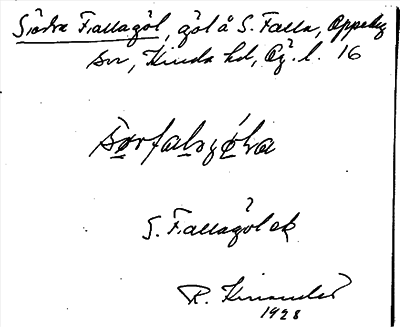 Södra Fallagöl, göl å S. Falla, Oppeby
sn, Kinda hd, Ög. l. 16
sørfalsgøla
S. Fallagöl ek
R. Kinander
1928